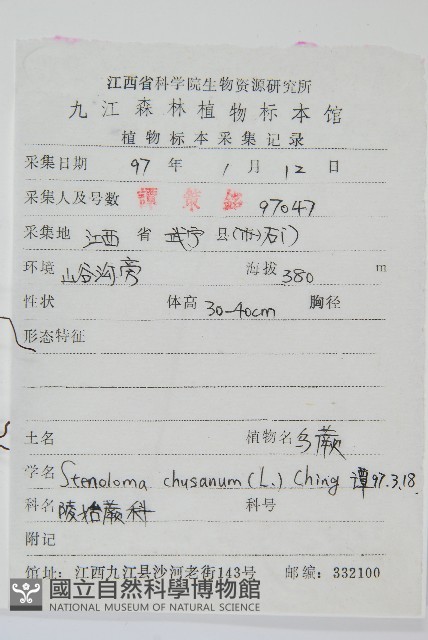 江西省科学院生物资源研究所
九江森林植物标本馆
植物标本采集记录
采集日期 97 年 1 月 12 日
采集人及号数 譚 97047
采集地 江西 省 武宁 县(市)石门
环境 山谷沟旁 海拔 380 m
性状 体高 30-40cm 胸径
形态特征
土名 植物名 乌蕨
学名 Stenoloma chusanum (L.) Ching 譚97.3.18.
科名 陵齿蕨科 科号
附记
馆址:江西九江县沙河老街143号 邮编:332100
國立自然科學博物館
NATIONAL MUSEUM OF NATURAL SCIENCE